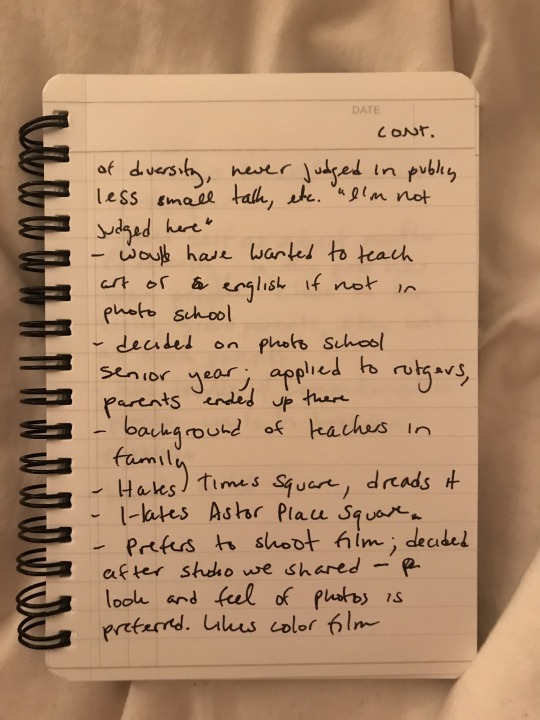 DATE
CONT.
of diversity, never judged in public,
less small talk, etc. "I'm not
judged here"
- would have wanted to teach
art or english if not in
photo school
- decided on photo school
senior year; applied to rutgers,
parents ended up there
- background of teachers in
family
- Hates Times Square, dreads it
- Hates Astor Place Square.
- Prefers to shoot film; decided
after studio we shared -
look and feel of photos is
preferred. Likes color film